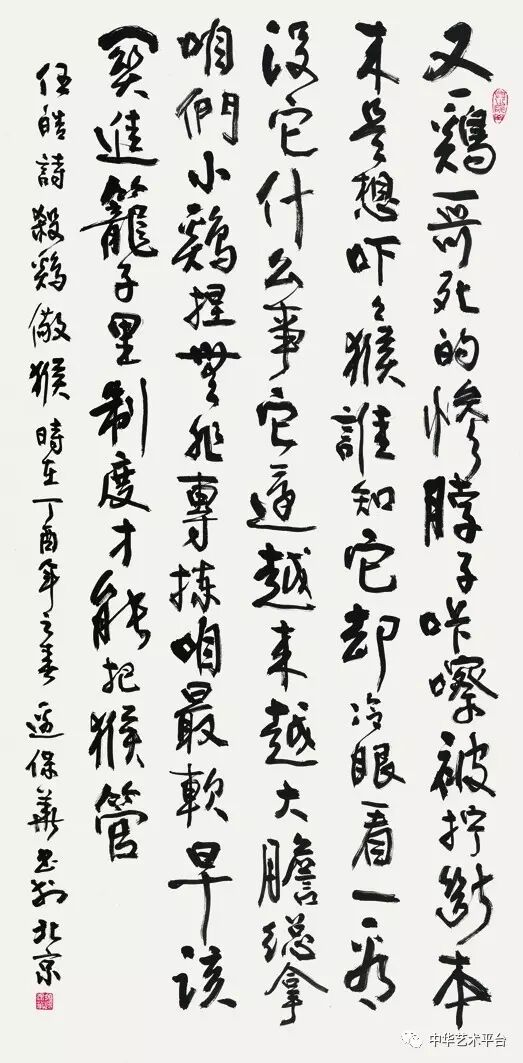 又一鷄哥死的慘脖子咔嚓被拧斷本
來是想吓々猴誰知它却冷眼看一看
没它什么事它還越来越大膽總拿
咱們小鷄捏無非專揀咱最軟早該
関進籠子里制度才能把猴管
伍皓詩殺鷄儆猴 時在丁酉年之春 邊保華書於北京
中华艺术平台